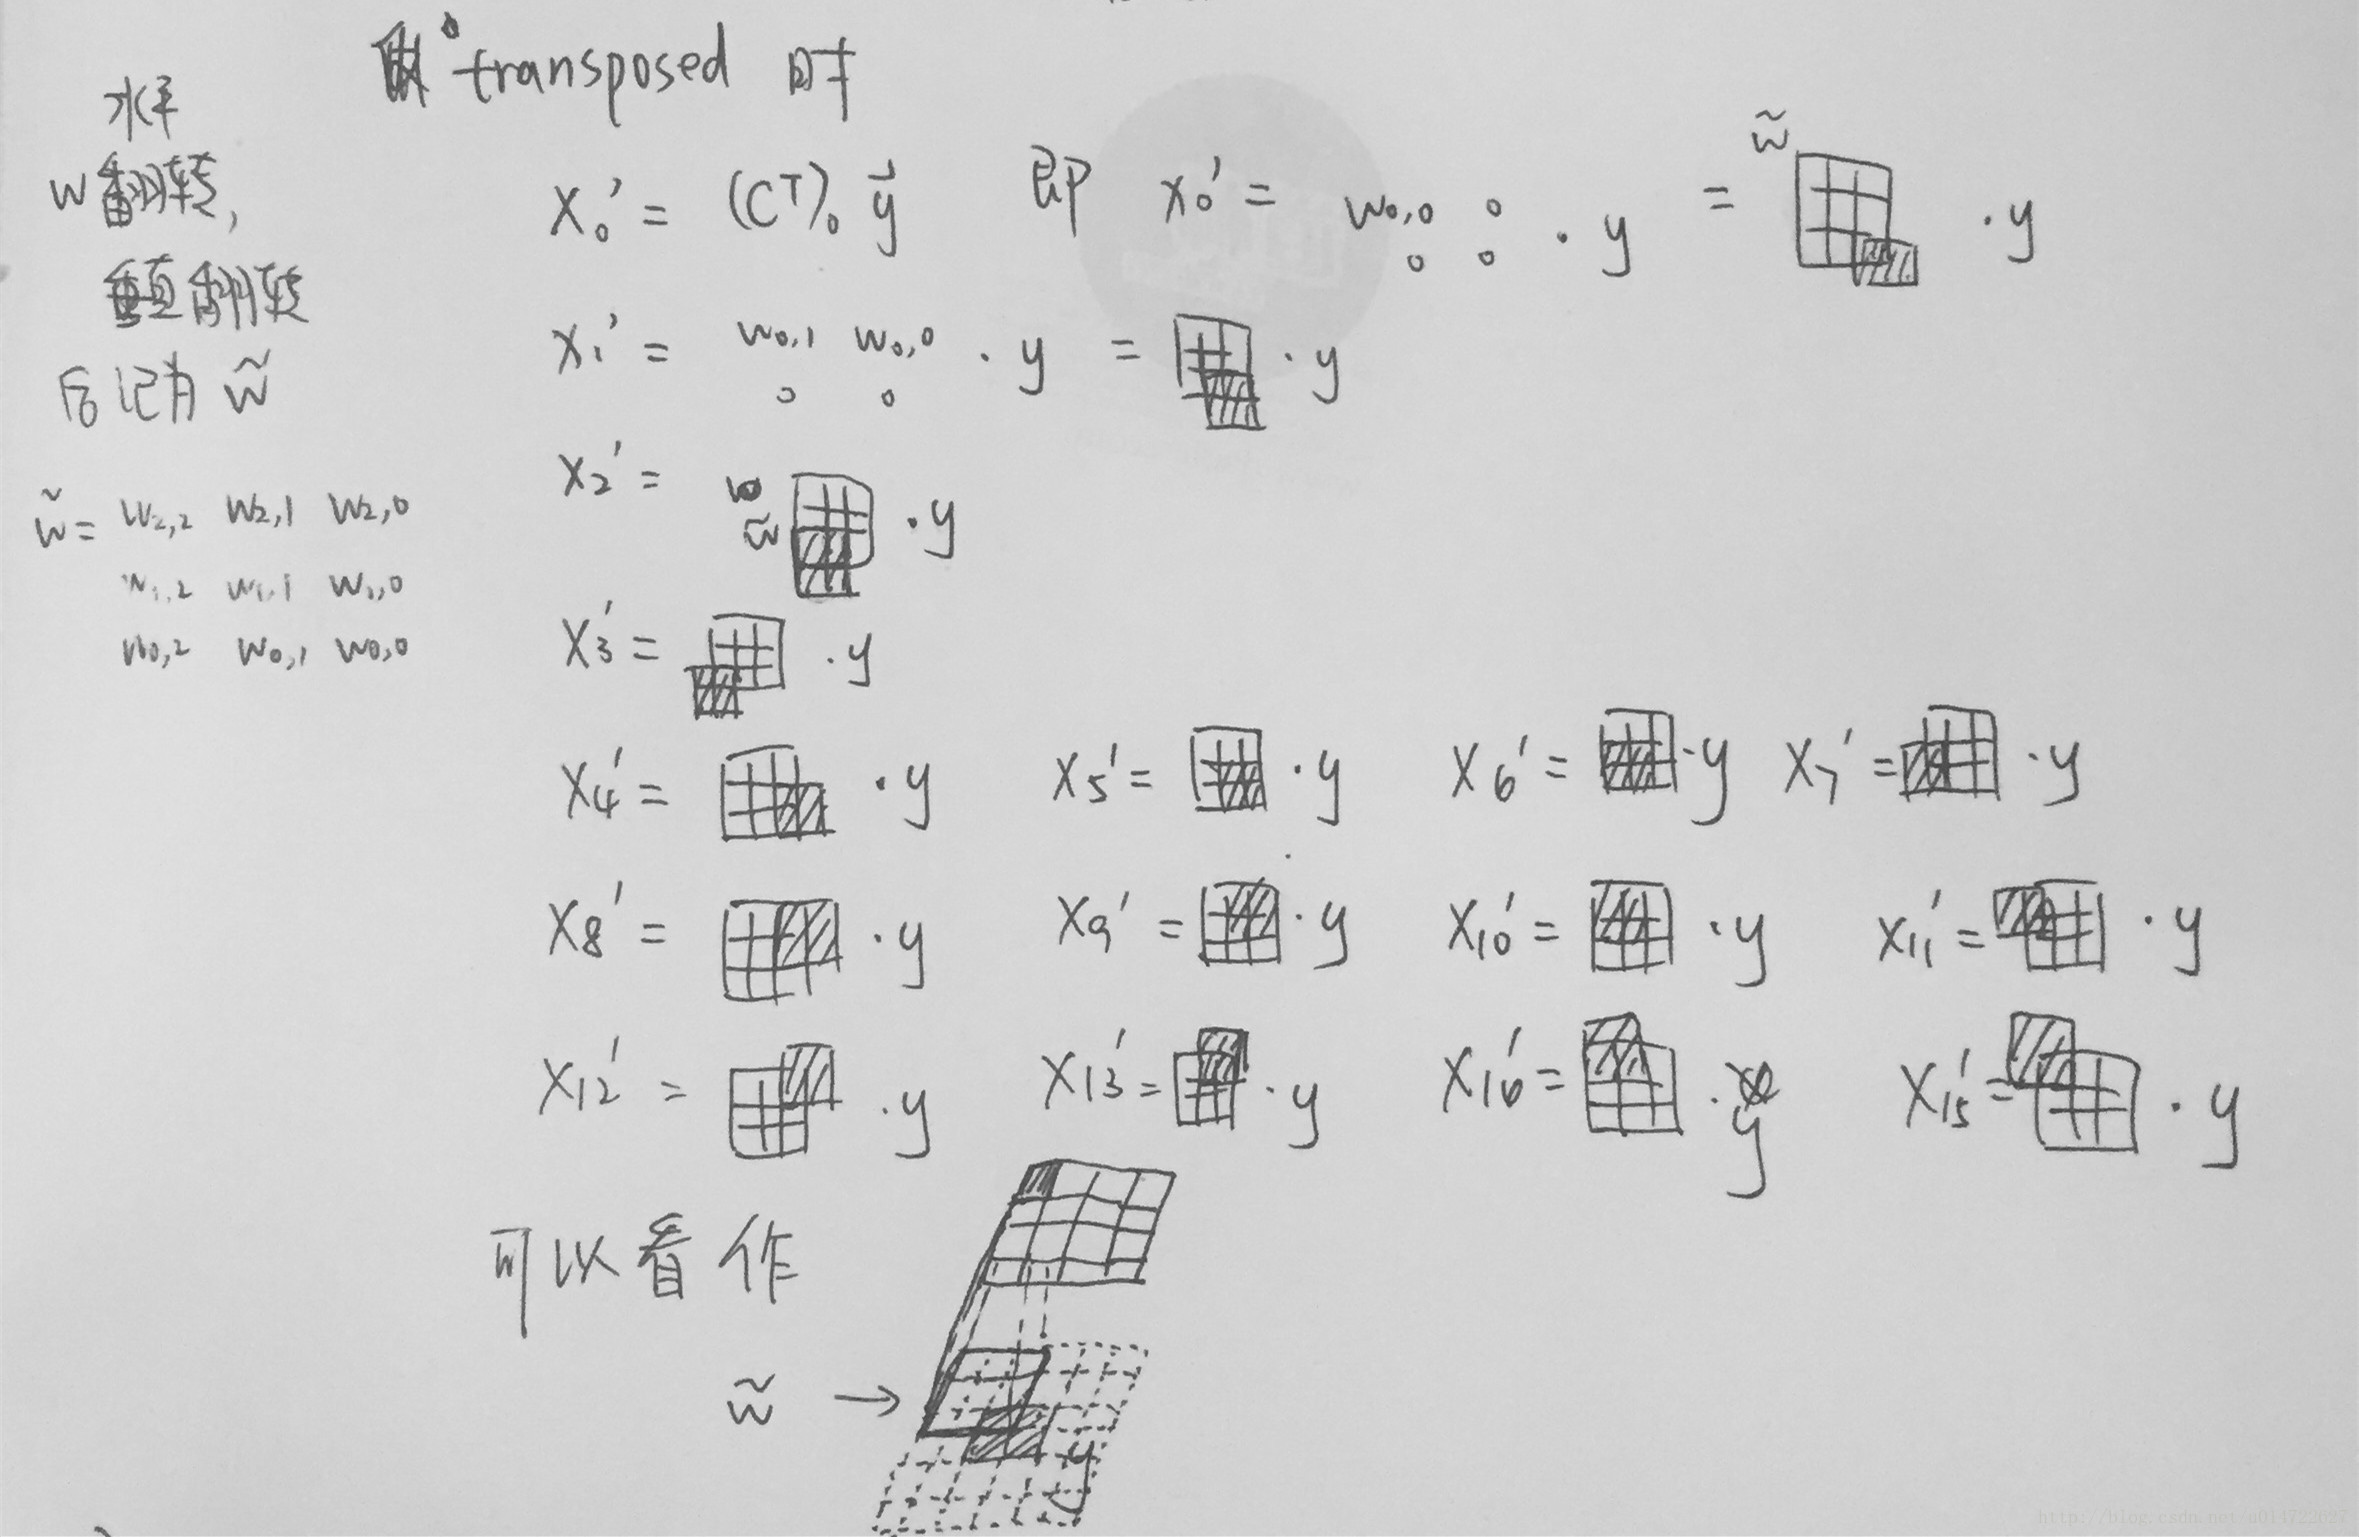 transposed 时
水平
w翻转,
垂直翻转
后记为 w̃
w̃ = w2,2 w2,1 w2,0
w1,2 w1,1 w1,0
w0,2 w0,1 w0,0
x0' = (C^T)0 y⃗ 即 x0' = w0,0 0 · y = w̃ · y
0 0
x1' = w0,1 w0,0 · y = · y
0 0
x2' = w̃ · y
x3' = · y
x4' = · y x5' = · y x6' = · y x7' = · y
x8' = · y x9' = · y x10' = · y x11' = · y
x12' = · y x13' = · y x16' = · y x15' = · y
可以看作
w̃ →
y